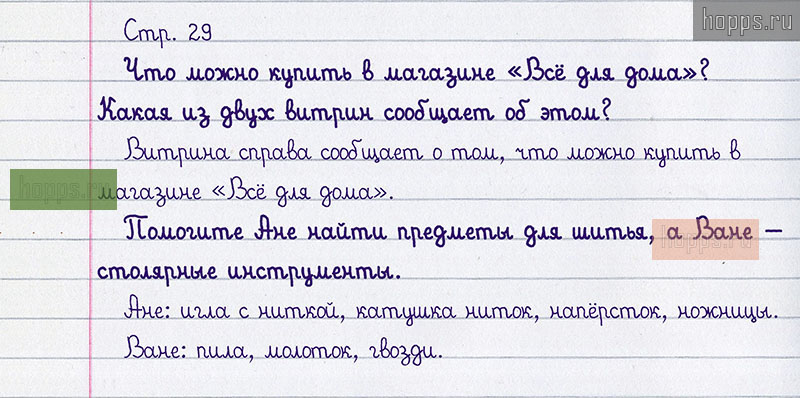 hopps.ru
Стр. 29
Что можно купить в магазине «Всё для дома»?
Какая из двух витрин сообщает об этом?
Витрина справа сообщает о том, что можно купить в
hopps.ru
магазине «Всё для дома».
Помогите Ане найти предметы для шитья, а Ване –
hopps.ru
столярные инструменты.
Ане: игла с ниткой, катушка ниток, напёрсток, ножницы.
Ване: пила, молоток, гвозди.